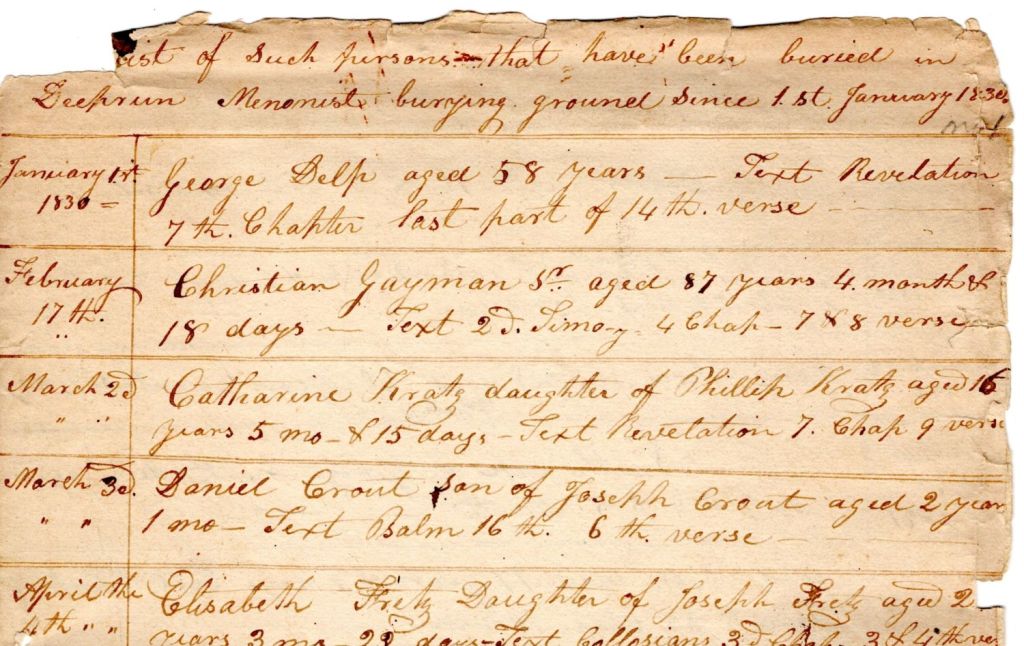 ist of Such persons that have been buried in
Deeprun Menonist burying ground Since 1.st. January 1830.
January 1st. George Delp aged 58 years — Text Revelation
1830 = 7th. Chapter last part of 14th. verse —
February Christian Gayman Sr. aged 87 years 4 month &
17th. 18 days — Text 2d. Timo-y 4 Chap — 7 & 8 verse
March 2d Catharine Kratz daughter of Phillip Kratz aged 16
" " years 5 mo — & 15 days — Text Revelation 7. Chap 9 verse
March 3d. Daniel Crout son of Joseph Crout aged 2 year
" " 1 mo — Text Balm 16th. 6th. verse —
April the Elisabeth Fretz Daughter of Joseph Fretz aged 2
4th " " years 3 mo — 22 days — Text Collosians 3d Chap — 3 & 4th ve